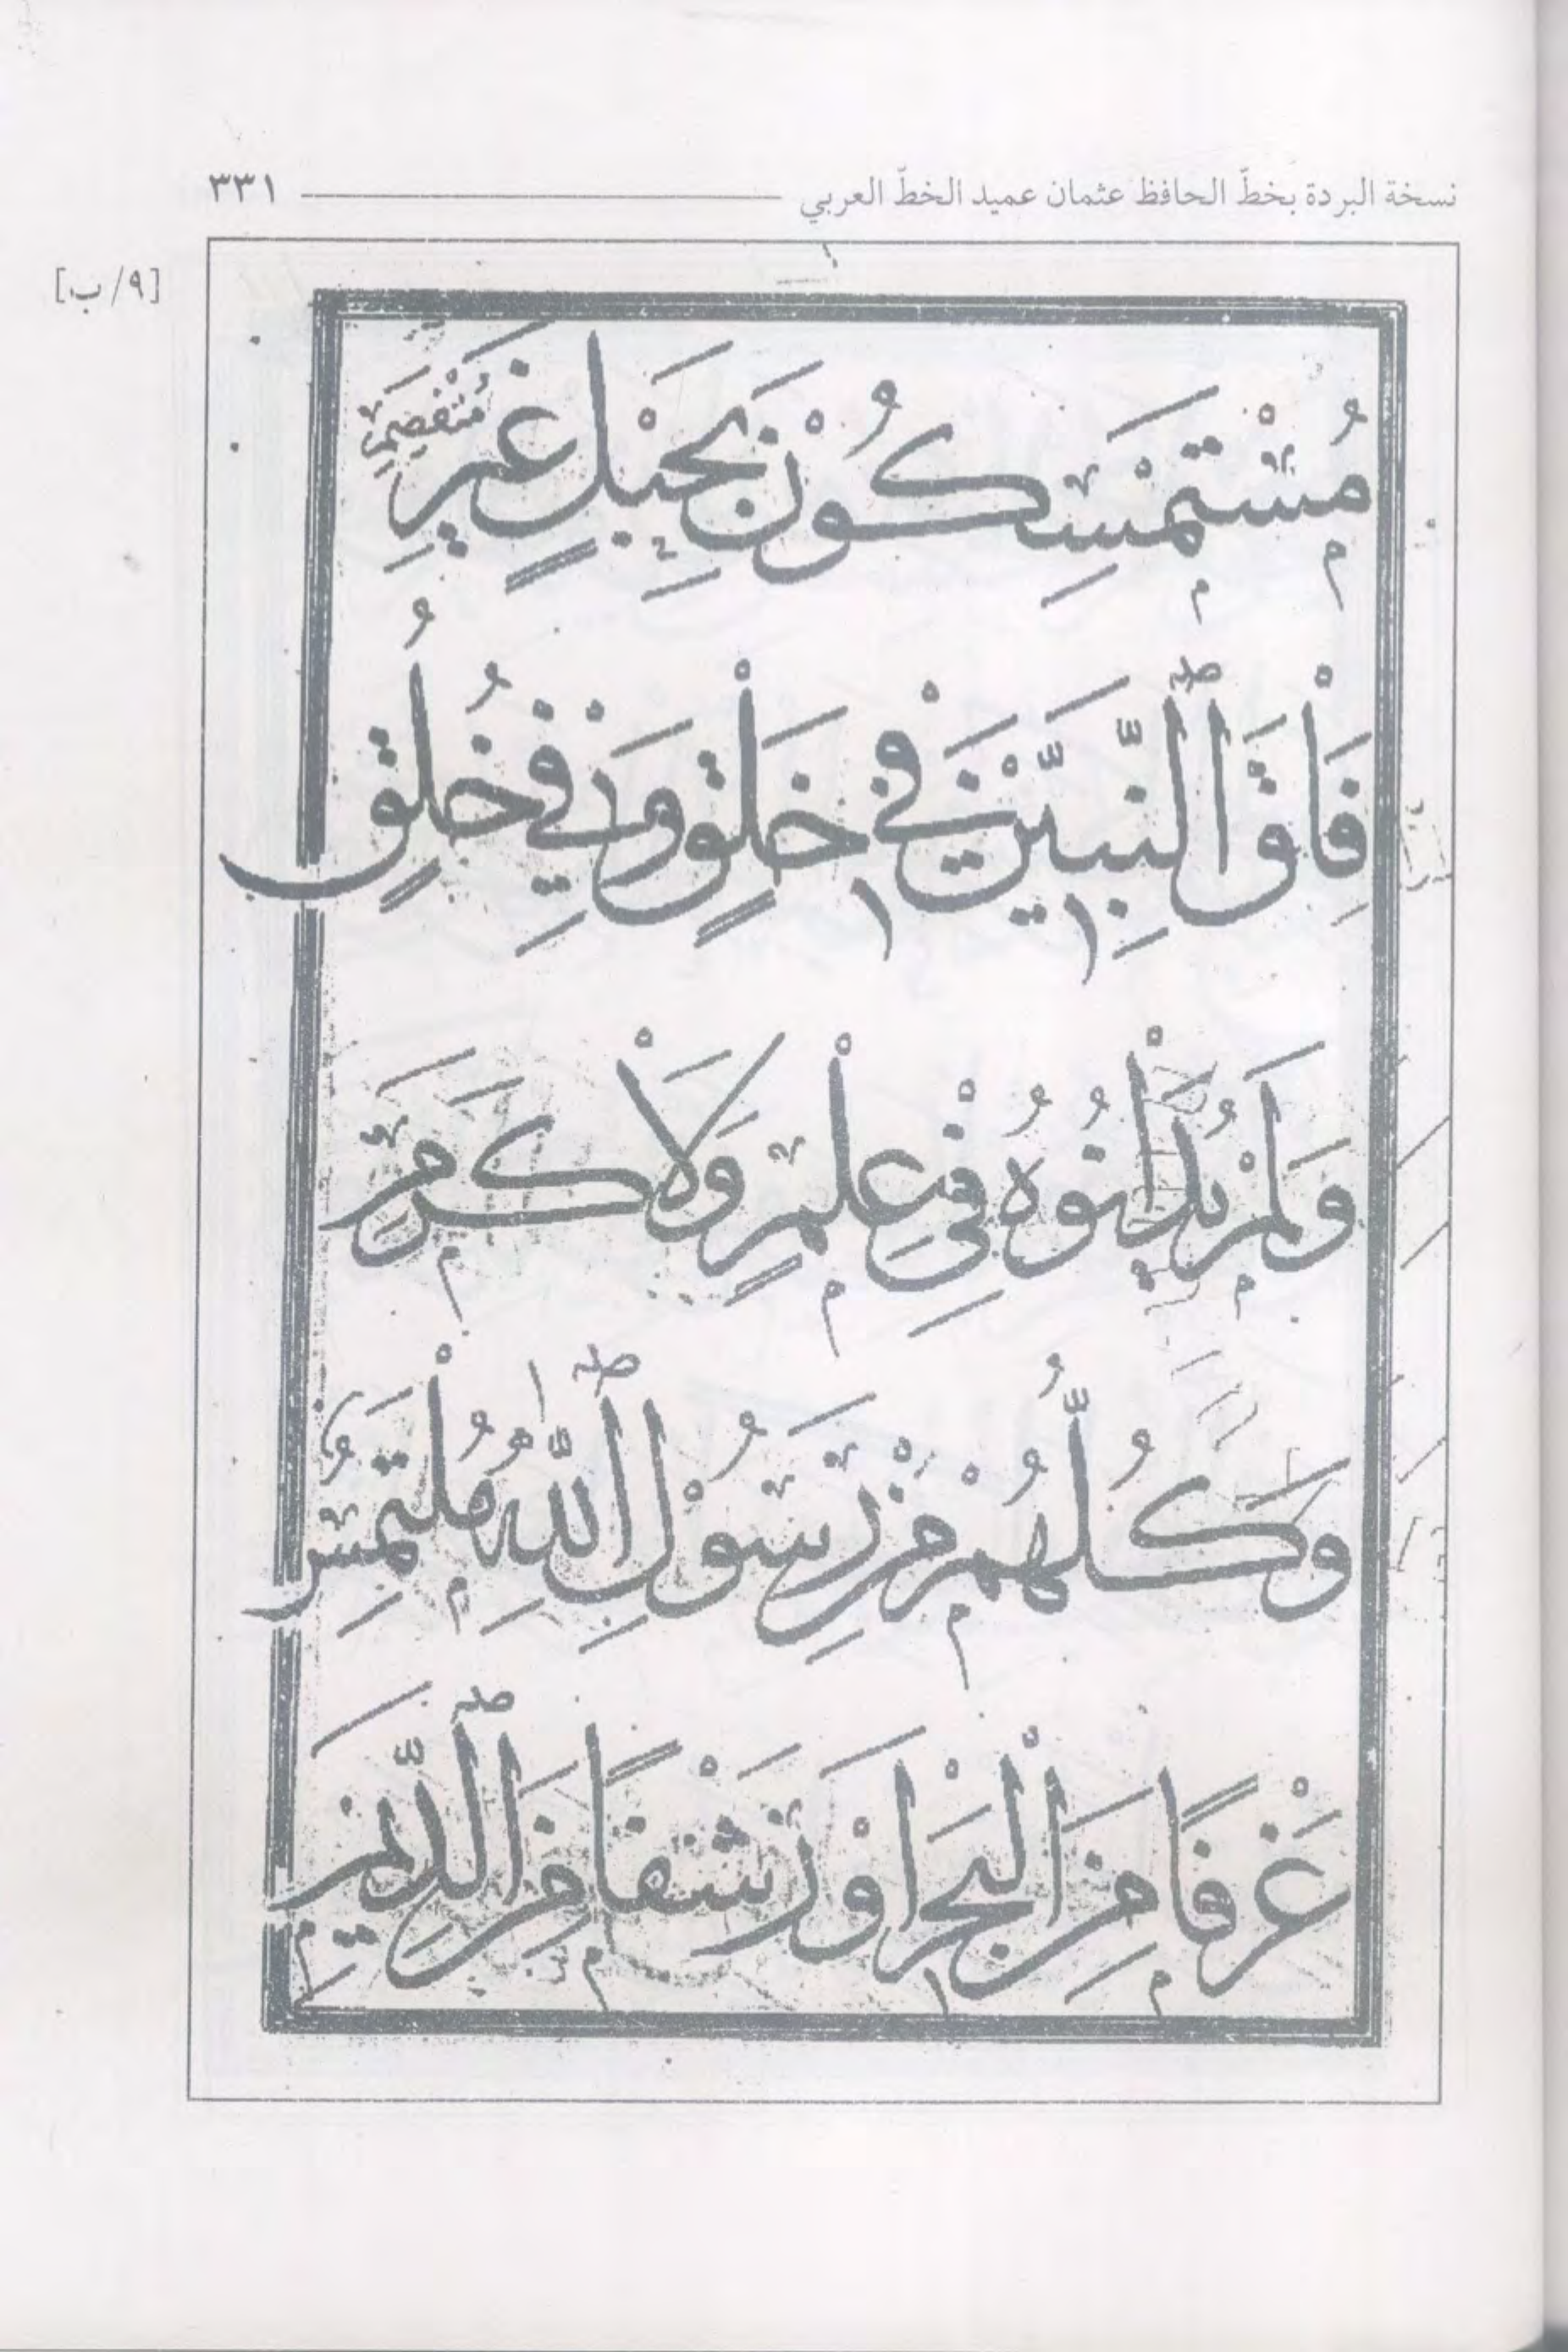 نسخة البردة بخطّ الحافظ عثمان عميد الخطّ العربي ٣٣١
[٩/ب]
مُسْتَمْسِكُوْنَ بِحَبْلٍ غَيْرِ مُنْفَصِمِ
فَاْقَ ٱلنَّبِيِّيْنَ فِيْ خَلْقٍ وَفِيْ خُلُقٍ
وَلَمْ يُدَاْنُوْهُ فِيْ عِلْمٍ وَلَاْ كَرَمِ
وَكُلُّهُمْ مِنْ رَسُوْلِ ٱللّٰهِ مُلْتَمِسٌ
غَرْفًا مِنَ الْبَحْرِ اَوْ رَشْفًا مِنَ ٱلدِّيَمِ